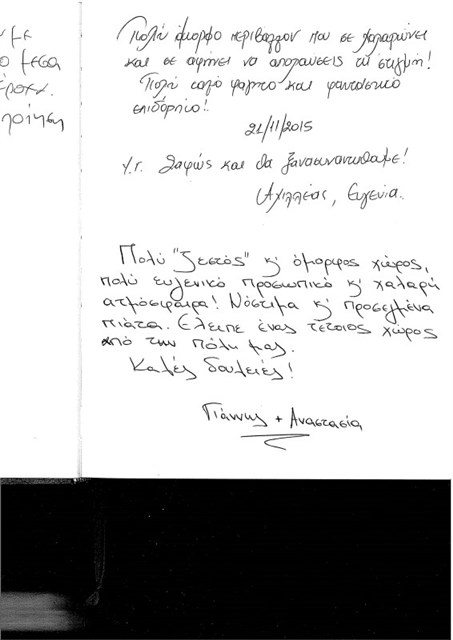 με
ο μεσα
Πολύ όμορφο περιβάλλον που σε χαλαρώνει
και σε αφήνει να απολαύσεις τη στιγμή!
Πολύ καλό φαγητό και φανταστικό
επιδόρπιο!
21/11/2015
Υ.Γ. Σαφώς και θα ξανασυναντηθούμε!
Αχιλλέας, Ευγενία.
Πολύ "ζεστός" κ' όμορφος χώρος,
πολύ ευγενικό προσωπικό κ' χαλαρή
ατμόσφαιρα! Νόστιμα κ' προσεγμένα
πιάτα. Ελειπε ένας τέτοιος χώρος
από την πόλη μας.
Καλές δουλειές!
Γιάννης + Αναστασία